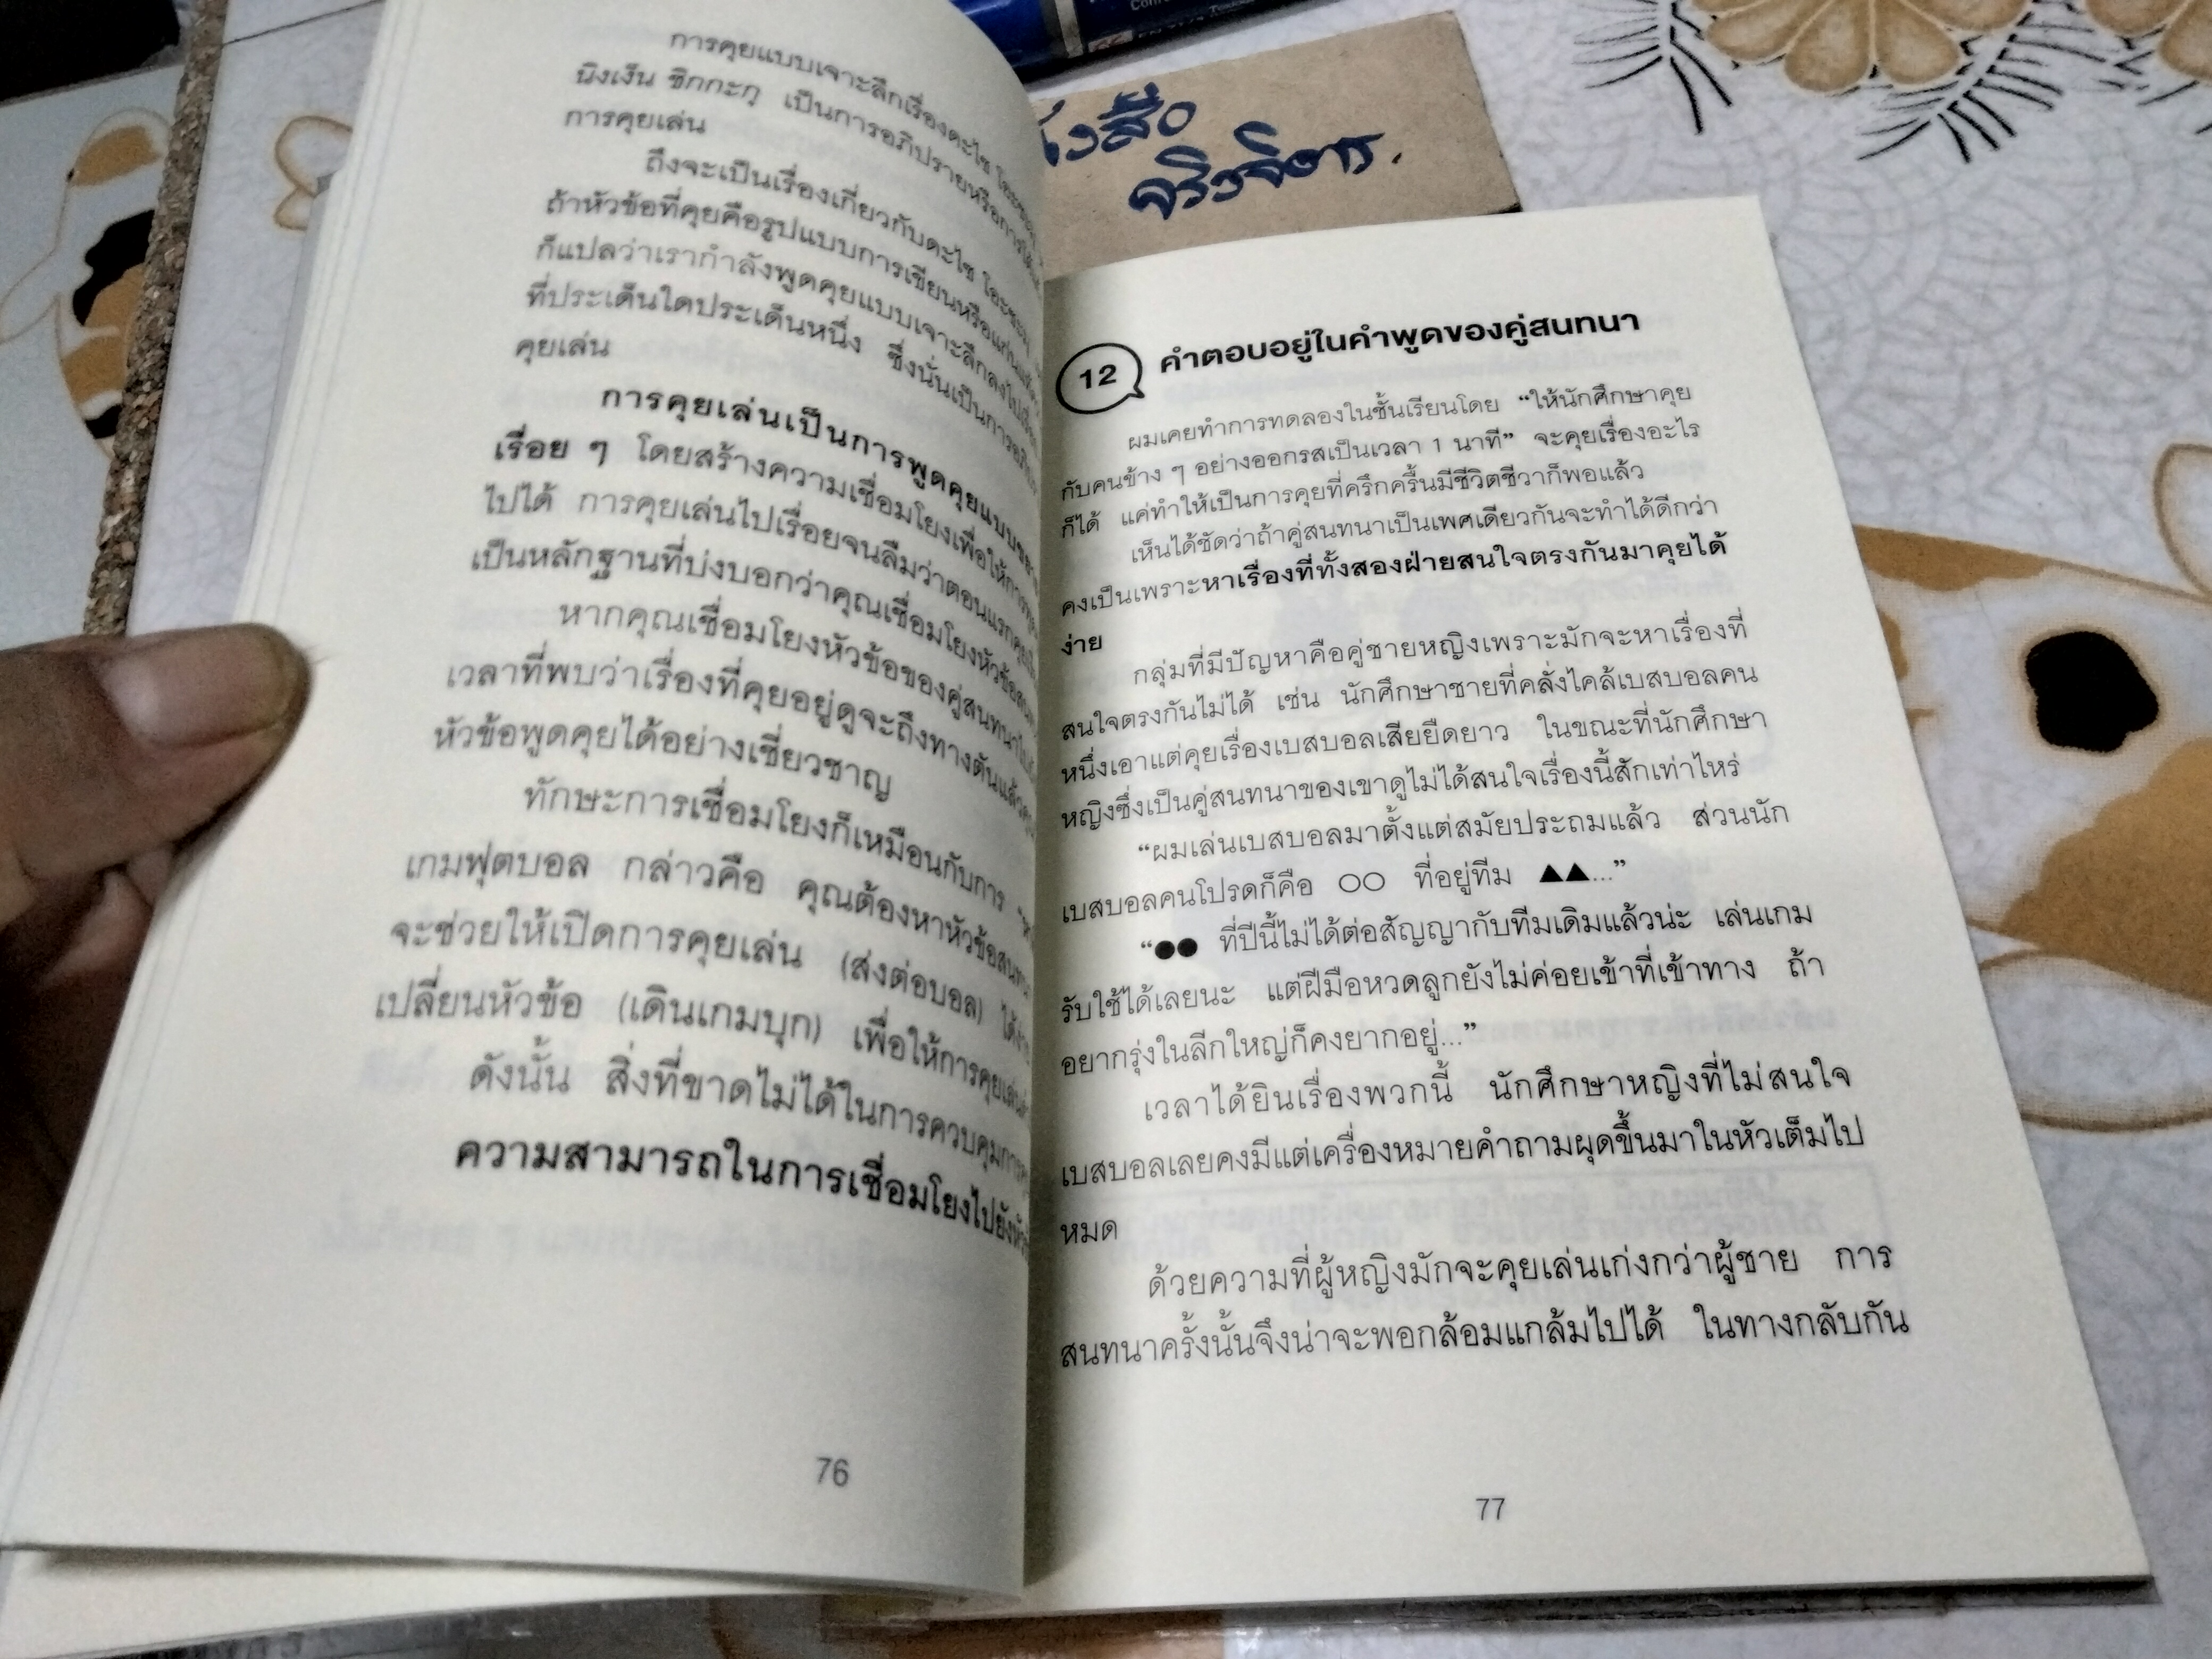 การคุยแบบเจาะลึกเรื่องดะไซ
นิงเง็น ชิกกะกุ เป็นการอภิปรายหรือการ
การคุยเล่น
ถึงจะเป็นเรื่องเกี่ยวกับดะไซ โอะซะมุ
ถ้าหัวข้อที่คุยคือรูปแบบการเขียนหรือแก่น
ก็แปลว่าเรากำลังพูดคุยแบบเจาะลึกลงไป
ที่ประเด็นใดประเด็นหนึ่ง ซึ่งนั่นเป็นการ
คุยเล่น
การคุยเล่นเป็นการพูดคุยแบบ
เรื่อย ๆ โดยสร้างความเชื่อมโยงเพื่อให้การ
ไปได้ การคุยเล่นไปเรื่อยจนลืมว่าตอนแรกคุย
เป็นหลักฐานที่บ่งบอกว่าคุณเชื่อมโยงหัวข้อ
หากคุณเชื่อมโยงหัวข้อของคู่สนทนา
เวลาที่พบว่าเรื่องที่คุยอยู่ดูจะถึงทางตันแล้ว
หัวข้อพูดคุยได้อย่างเชี่ยวชาญ
ทักษะการเชื่อมโยงก็เหมือนกับการ
เกมฟุตบอล กล่าวคือ คุณต้องหาหัวข้อ
จะช่วยให้เปิดการคุยเล่น (ส่งต่อบอล)
เปลี่ยนหัวข้อ (เดินเกมบุก) เพื่อให้การคุยเล่น
ดังนั้น สิ่งที่ขาดไม่ได้ในการควบคุม
ความสามารถในการเชื่อมโยงไปยัง
76
จริวจิตาร.
12 คำตอบอยู่ในคำพูดของคู่สนทนา
ผมเคยทำการทดลองในชั้นเรียนโดย “ให้นักศึกษาคุย
กับคนข้าง ๆ อย่างออกรสเป็นเวลา 1 นาที” จะคุยเรื่องอะไร
ก็ได้ แค่ทำให้เป็นการคุยที่ครึกครื้นมีชีวิตชีวาก็พอแล้ว
เห็นได้ชัดว่าถ้าคู่สนทนาเป็นเพศเดียวกันจะทำได้ดีกว่า
คงเป็นเพราะหาเรื่องที่ทั้งสองฝ่ายสนใจตรงกันมาคุยได้
ง่าย
กลุ่มที่มีปัญหาคือคู่ชายหญิงเพราะมักจะหาเรื่องที่
สนใจตรงกันไม่ได้ เช่น นักศึกษาชายที่คลั่งไคล้เบสบอลคน
หนึ่งเอาแต่คุยเรื่องเบสบอลเสียยืดยาว ในขณะที่นักศึกษา
หญิงซึ่งเป็นคู่สนทนาของเขาดูไม่ได้สนใจเรื่องนี้สักเท่าไหร่
“ผมเล่นเบสบอลมาตั้งแต่สมัยประถมแล้ว ส่วนนัก
เบสบอลคนโปรดก็คือ ○○ ที่อยู่ทีม ▲▲...”
“●● ที่ปีนี้ไม่ได้ต่อสัญญากับทีมเดิมแล้วน่ะ เล่นเกม
รับใช้ได้เลยนะ แต่ฝีมือหวดลูกยังไม่ค่อยเข้าที่เข้าทาง ถ้า
อยากรุ่งในลีกใหญ่ก็คงยากอยู่...”
เวลาได้ยินเรื่องพวกนี้ นักศึกษาหญิงที่ไม่สนใจ
เบสบอลเลยคงมีแต่เครื่องหมายคำถามผุดขึ้นมาในหัวเต็มไป
หมด
ด้วยความที่ผู้หญิงมักจะคุยเล่นเก่งกว่าผู้ชาย การ
สนทนาครั้งนั้นจึงน่าจะพอกล้อมแกล้มไปได้ ในทางกลับกัน
77